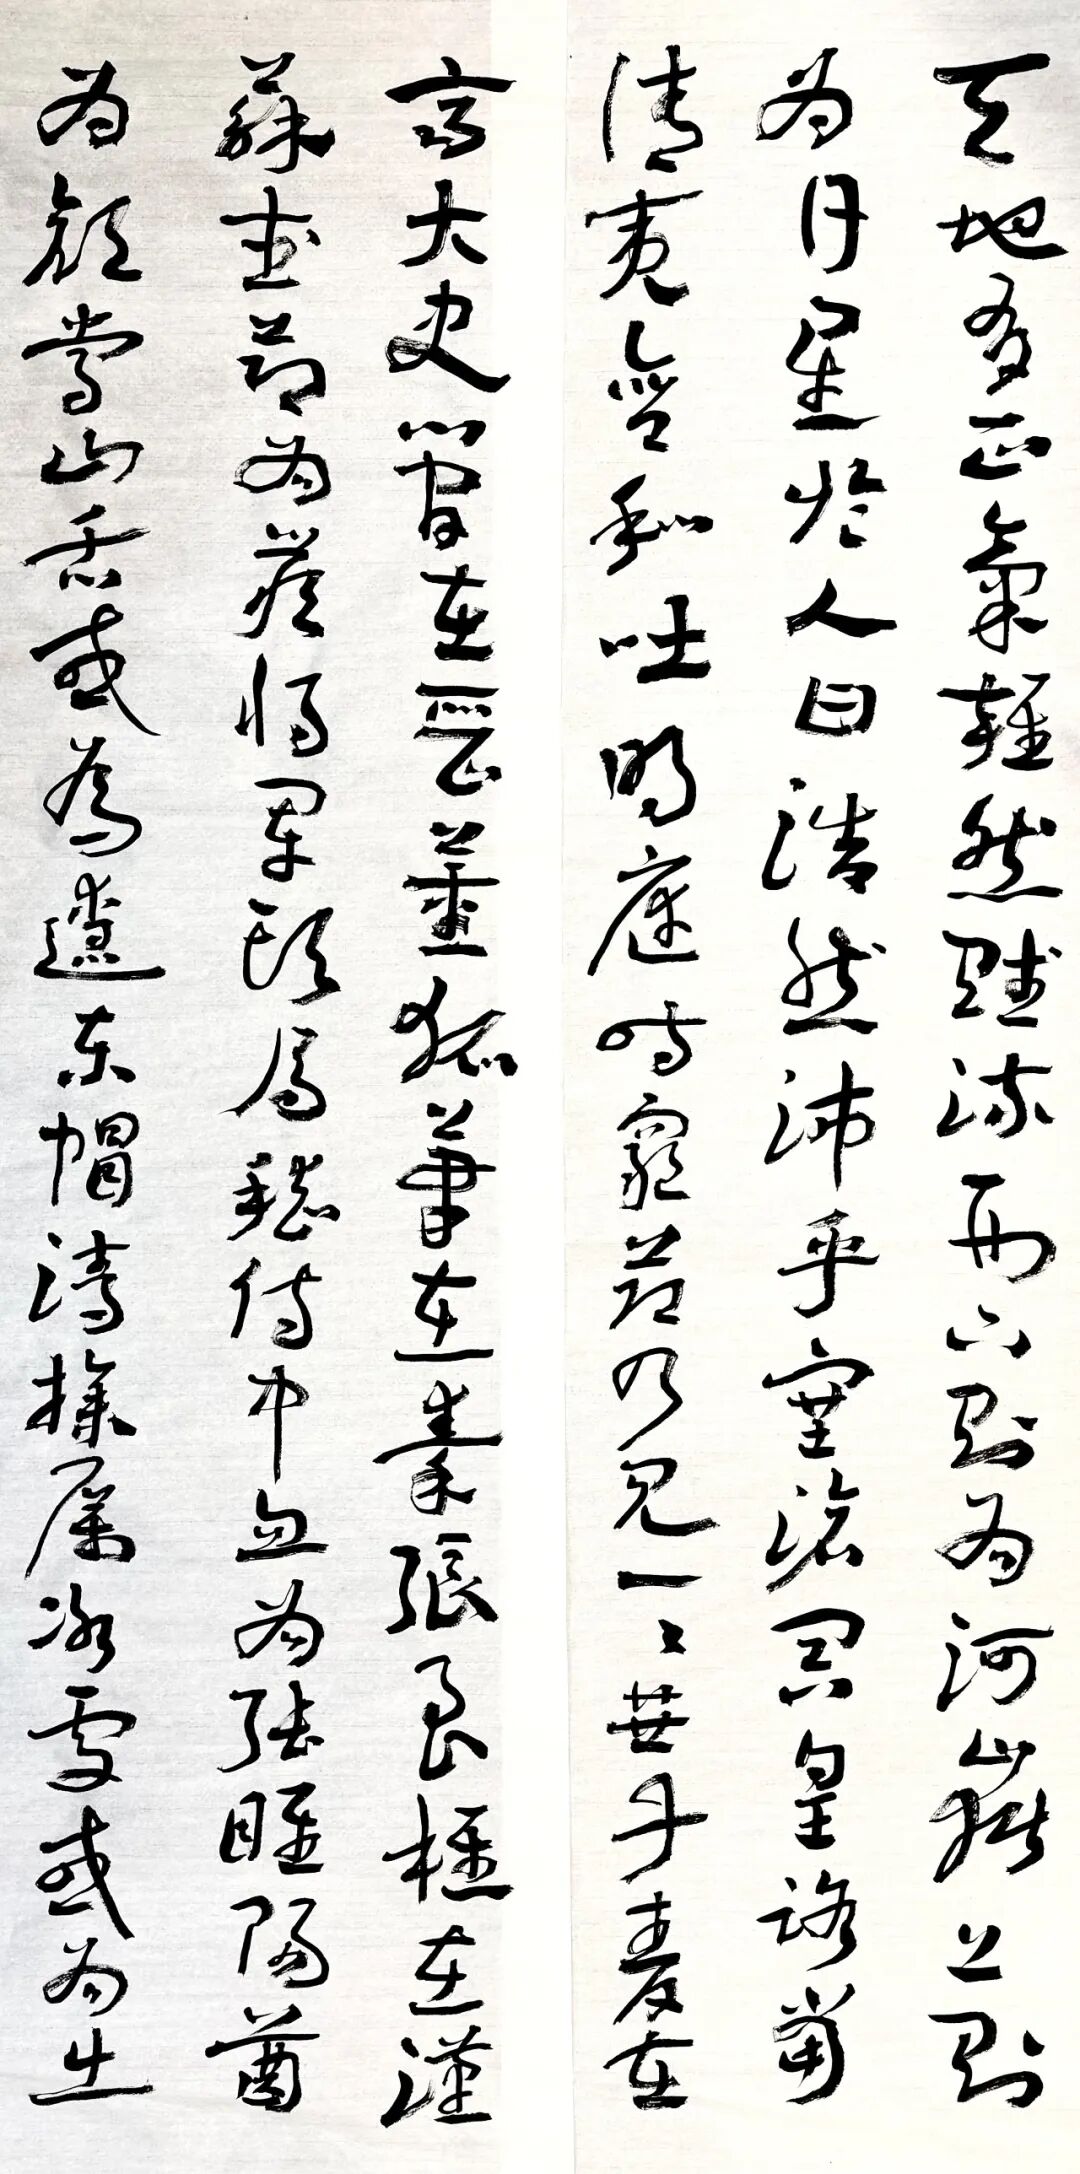 天地有正氣雜然賦流形下則為河嶽上則
為日星於人曰浩然沛乎塞滄冥皇路當
清夷含和吐明庭時窮節乃見一々垂丹青在
齊大史簡在晉董狐筆在秦張良椎在漢
蘇武節為嚴將軍頭為嵇侍中血為張睢陽齒
為顏常山舌或為遼東帽清操厲冰雪或為出